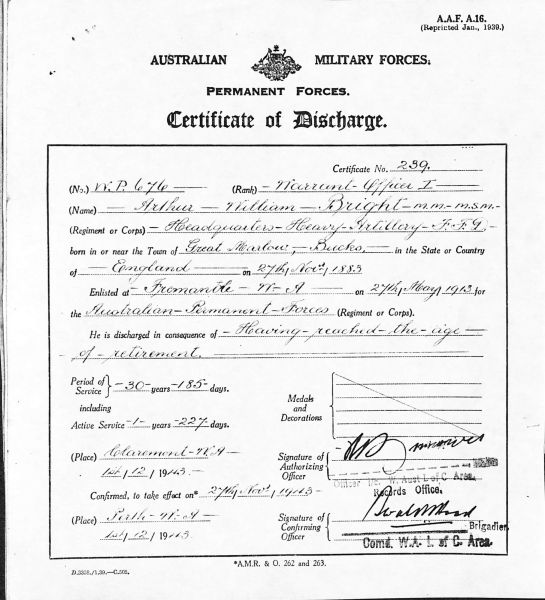 A.A.F. A.16.
(Reprinted Jan., 1939.)
AUSTRALIAN MILITARY FORCES.
PERMANENT FORCES.
Certificate of Discharge.
Certificate No. 239.
(No.) W.P. 676 (Rank) Warrant Officer I
(Name) Arthur William Bright M.M. M.S.M.
(Regiment or Corps) Headquarters Heavy Artillery F.F.G.
born in or near the Town of Great Marlow, Bucks in the State or Country
of England on 27th Novr 1883
Enlisted at Fremantle W A on 27th May 1913 for
the Australian Permanent Forces (Regiment or Corps).
He is discharged in consequence of Having reached the age
of retirement.
Period of Service 30 years 185 days.
including
Active Service 1 years 227 days.
Medals and Decorations
(Place) Claremont W.A
1st/12/1943
Signature of Authorizing Officer
Officer i/c. W. Aust L of C Area.
Records Office.
Confirmed, to take effect on* 27th Novr 1943
(Place) Perth W.A
1st/12/1943
Signature of Confirming Officer
Brigadier
Comd. W.A. L. of C. Area.
*A.M.R. & O. 262 and 263.
D.3358./1.39.—C.505.